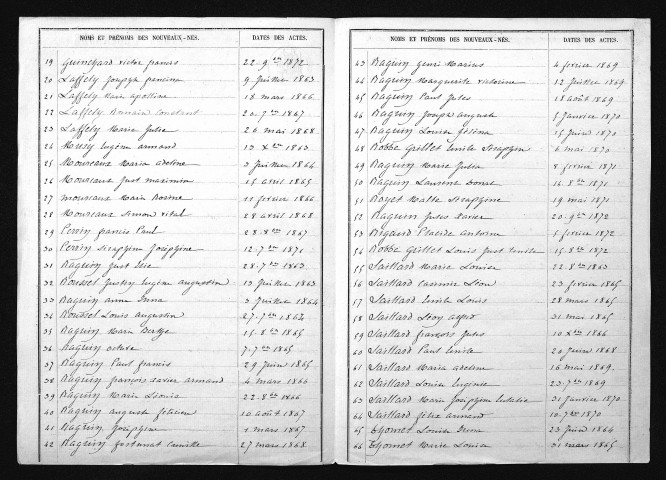 NOMS ET PRÉNOMS DES NOUVEAUX-NÉS. DATES DES ACTES.
19 Guineyard victor francis 22 9bre 1872
20 Laffely Joseph francine 9 juillet 1863
21 Laffely Marie 18 mars 1866
22 Laffely Romain constant 20 7bre 1867
23 Laffely Marie Julie 26 mai 1868
24 Mussy Eugène armand 13 Xbre 1863
25 Monceaux Marie adeline 3 juillet 1864
26 Monceaux Just maximin 15 avril 1865
27 monceaux Marie Rosine 11 février 1866
28 Monceaux Simon vital 28 avril 1868
29 Perrin francis Paul 28 8bre 1867
30 Perrin Séraphine Joséphine 12 7bre 1871
31 Raguin Just Elie 28 7bre 1863
32 Rousset Justin Eugène augustin 13 juillet 1863
33 Raguin anne Irma 3 juillet 1864
34 Rousset Louis augustin 27 7bre 1864
35 Raguin Marie Berthe 15 8bre 1865
36 Raguin octave 7 7bre 1865
37 Raguin Paul francis 29 juin 1865
38 Raguin françois xavier armand 4 mars 1866
39 Raguin Marie Léonie 22 8bre 1866
40 Raguin auguste félicien 10 août 1867
41 Raguin Joséphine 1 mars 1867
42 Raguin fortunat camille 27 mars 1868
NOMS ET PRÉNOMS DES NOUVEAUX-NÉS. DATES DES ACTES.
43 Raguin henri Marius 4 février 1869
44 Raguin Marguerite victorine 12 juillet 1869
45 Raguin Paul Jules 18 août 1869
46 Raguin Joseph auguste 5 janvier 1870
47 Raguin Louise 15 juin 1870
48 Robbe Grillet Emile Séraphin 6 mai 1870
49 Raguin Marie Julia 8 février 1871
50 Raguin Laurent 14 8bre 1871
51 Royet Malte Séraphine 19 mai 1871
52 Raguin Jules xavier 20 9bre 1872
53 Rigaud Placide Antoine 5 février 1872
54 Robbe Grillet Louis Just Emile 15 8bre 1872
55 Saillard Marie Louise 22 8bre 1863
56 Saillard Casimir Léon 23 février 1865
57 Saillard Emile Louis 28 mars 1865
58 Saillard Léon alfred 31 mai 1865
59 Saillard françois Jules 10 Xbre 1866
60 Saillard Paul Emile 20 juin 1868
61 Saillard Maria adeline 16 mai 1869
62 Saillard Louise Eugénie 23 7bre 1869
63 Saillard Marie Joséphine Eulalie 31 janvier 1870
64 Saillard félix armand 10 7bre 1870
65 Thomet Louise Irma 23 juin 1864
66 Thomet Marie Louise 31 mars 1865